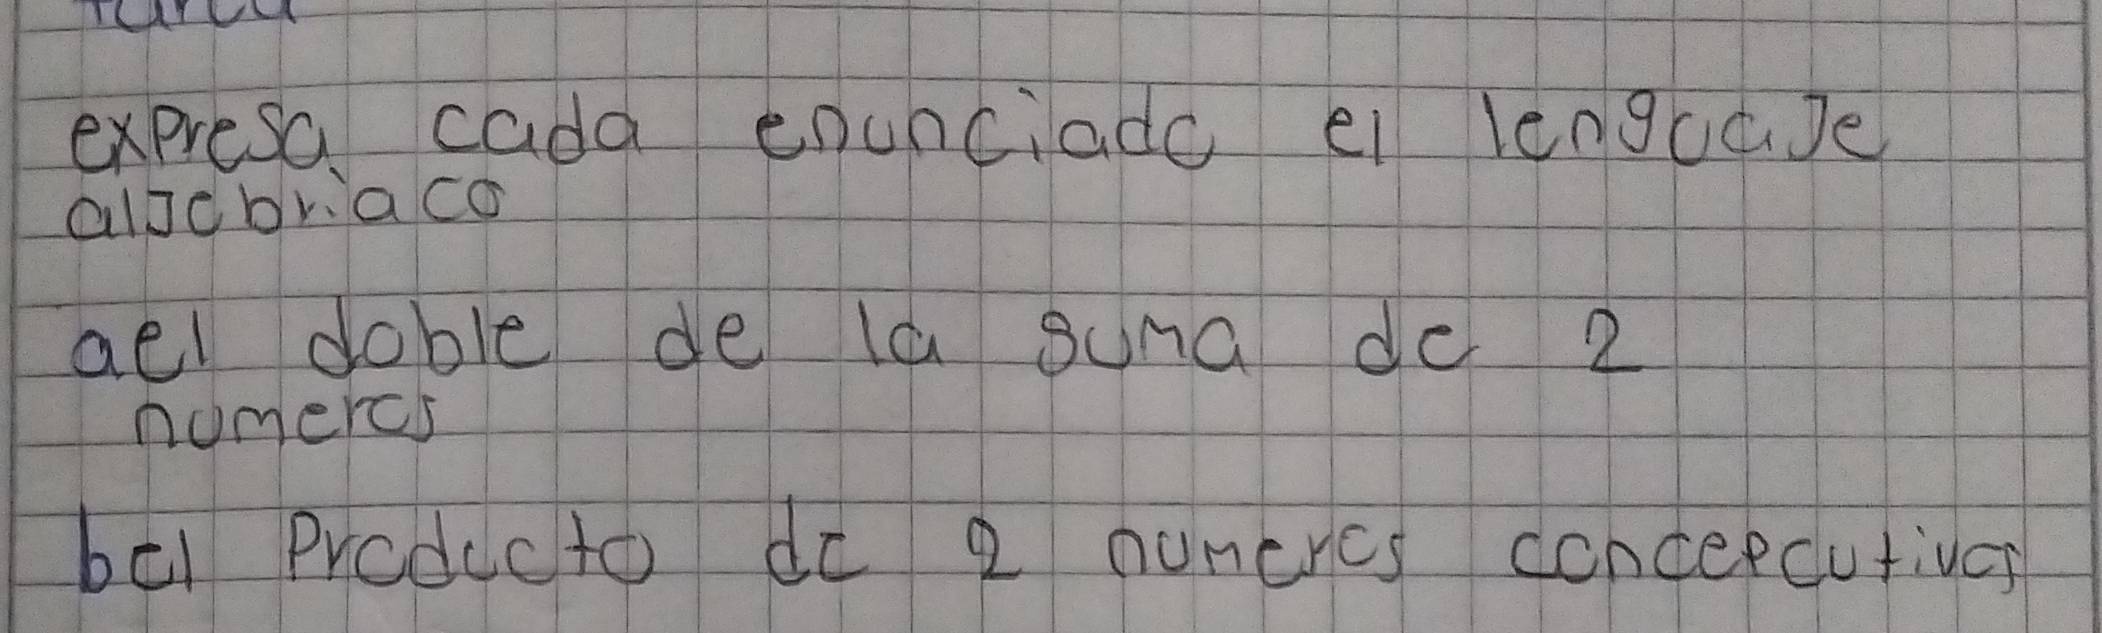 expresa cada enunciado el lenguaje
aljebriaco
a el doble de la suma de 2
numeros
b el Producto de 2 numeros concepcutivos